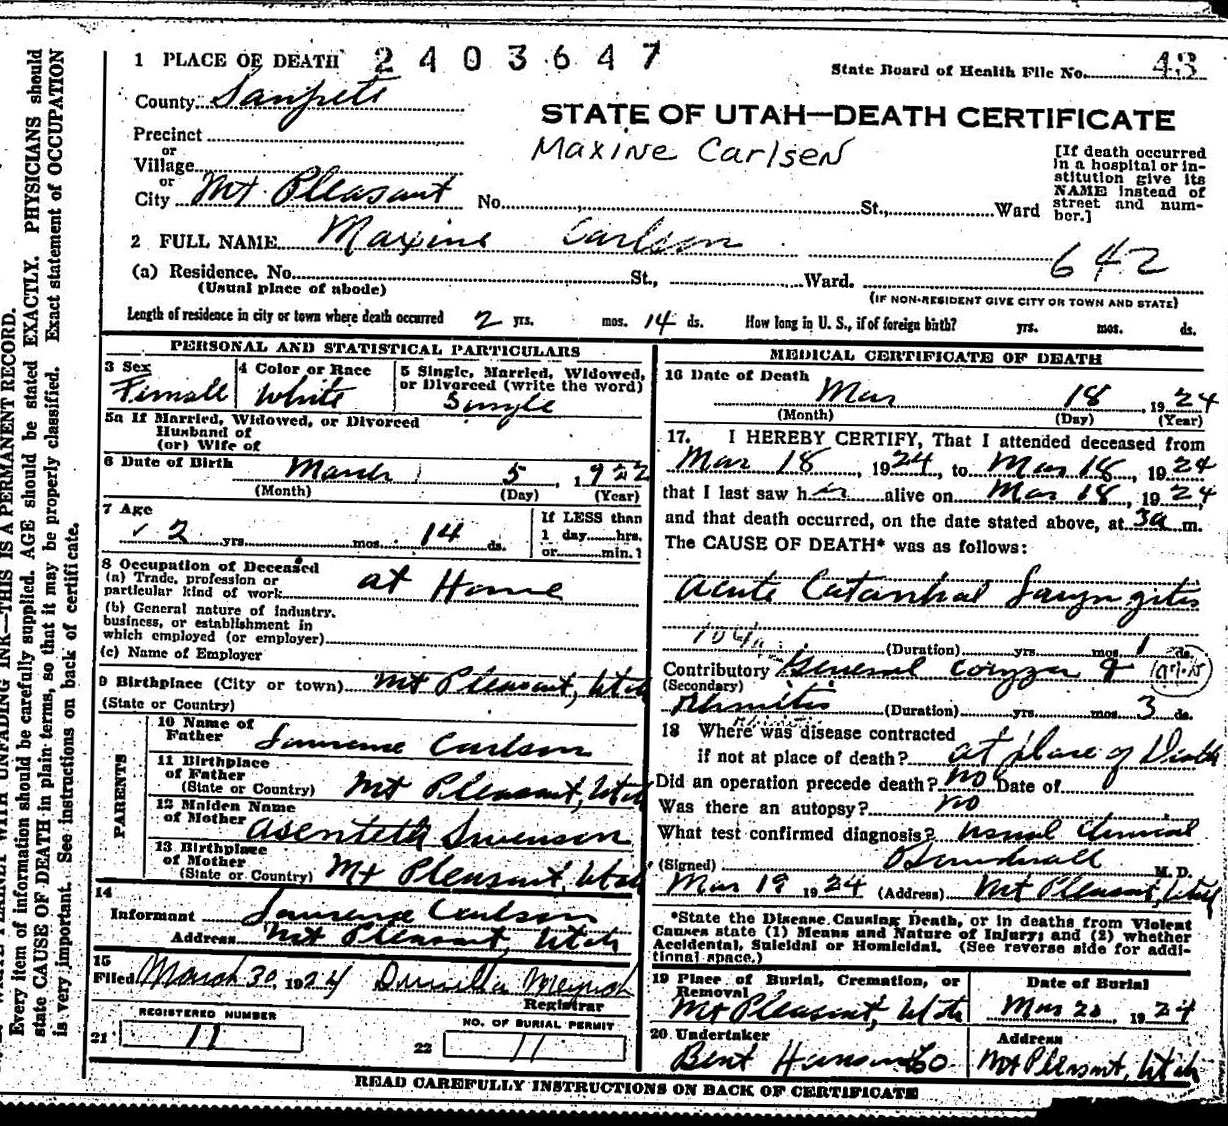 1 PLACE OF DEATH 2403647
State Board of Health File No. 43
County Sanpete
STATE OF UTAH—DEATH CERTIFICATE
Precinct
Maxine Carlsen
or
Village
or
City Mt Pleasant No. St., Ward
[If death occurred
in a hospital or in-
stitution give its
NAME instead of
street and num-
ber.]
2 FULL NAME Maxine Carlson
642
(a) Residence. No. St., Ward.
(Usual place of abode)
(IF NON-RESIDENT GIVE CITY OR TOWN AND STATE)
Length of residence in city or town where death occurred 2 yrs. mos. 14 ds. How long in U. S., if of foreign birth? yrs. mos. ds.
PERSONAL AND STATISTICAL PARTICULARS
3 Sex
Female
4 Color or Race
White
5 Single, Married, Widowed,
or Divorced (write the word)
Single
5a If Married, Widowed, or Divorced
Husband of
(or) Wife of
6 Date of Birth March 5, 1922
(Month) (Day) (Year)
7 Age
2 yrs. mos. 14 ds.
If LESS than
1 day hrs.
or min.?
8 Occupation of Deceased
(a) Trade, profession or
particular kind of work at Home
(b) General nature of industry,
business, or establishment in
which employed (or employer)
(c) Name of Employer
9 Birthplace (City or town) Mt Pleasant, Utah
(State or Country)
PARENTS
10 Name of
Father Lawrence Carlson
11 Birthplace
of Father
(State or Country) Mt Pleasant, Utah
12 Maiden Name
of Mother Asenteth Swenson
13 Birthplace
of Mother
(State or Country) Mt Pleasant, Utah
14
Informant Lawrence Carlson
Address Mt Pleasant, Utah
15
Filed March 30, 1924
Registrar
REGISTERED NUMBER
21 11
NO. OF BURIAL PERMIT
22 11
MEDICAL CERTIFICATE OF DEATH
16 Date of Death
Mar 18, 1924
(Month) (Day) (Year)
17. I HEREBY CERTIFY, That I attended deceased from
Mar 18, 1924, to Mar 18, 1924
that I last saw her alive on Mar 18, 1924,
and that death occurred, on the date stated above, at 3a m.
The CAUSE OF DEATH* was as follows:
Acute Catarrhal Laryngitis
(Duration) yrs. mos. 1 ds.
Contributory General Coryza &
(Secondary)
Rhinitis (Duration) yrs. mos. 3 ds.
Rhinitis
18 Where was disease contracted
if not at place of death? at place of Death
Did an operation precede death? no Date of
Was there an autopsy? no
What test confirmed diagnosis? usual Clinical
(Signed) M. D.
Mar 19 1924 (Address) Mt Pleasant, Utah
*State the Disease Causing Death, or in deaths from Violent
Causes state (1) Means and Nature of Injury; and (2) whether
Accidental, Suicidal or Homicidal. (See reverse side for addi-
tional space.)
19 Place of Burial, Cremation, or
Removal
Mt Pleasant, Utah
Date of Burial
Mar 20, 1924
20 Undertaker
Bent Hansen Co
Address
Mt Pleasant, Utah
READ CAREFULLY INSTRUCTIONS ON BACK OF CERTIFICATE
WITH UNFADING INK—THIS IS A PERMANENT RECORD.
Every item of information should be carefully supplied. AGE should be stated EXACTLY. PHYSICIANS should
state CAUSE OF DEATH in plain terms, so that it may be properly classified. Exact statement of OCCUPATION
is very important. See instructions on back of certificate.